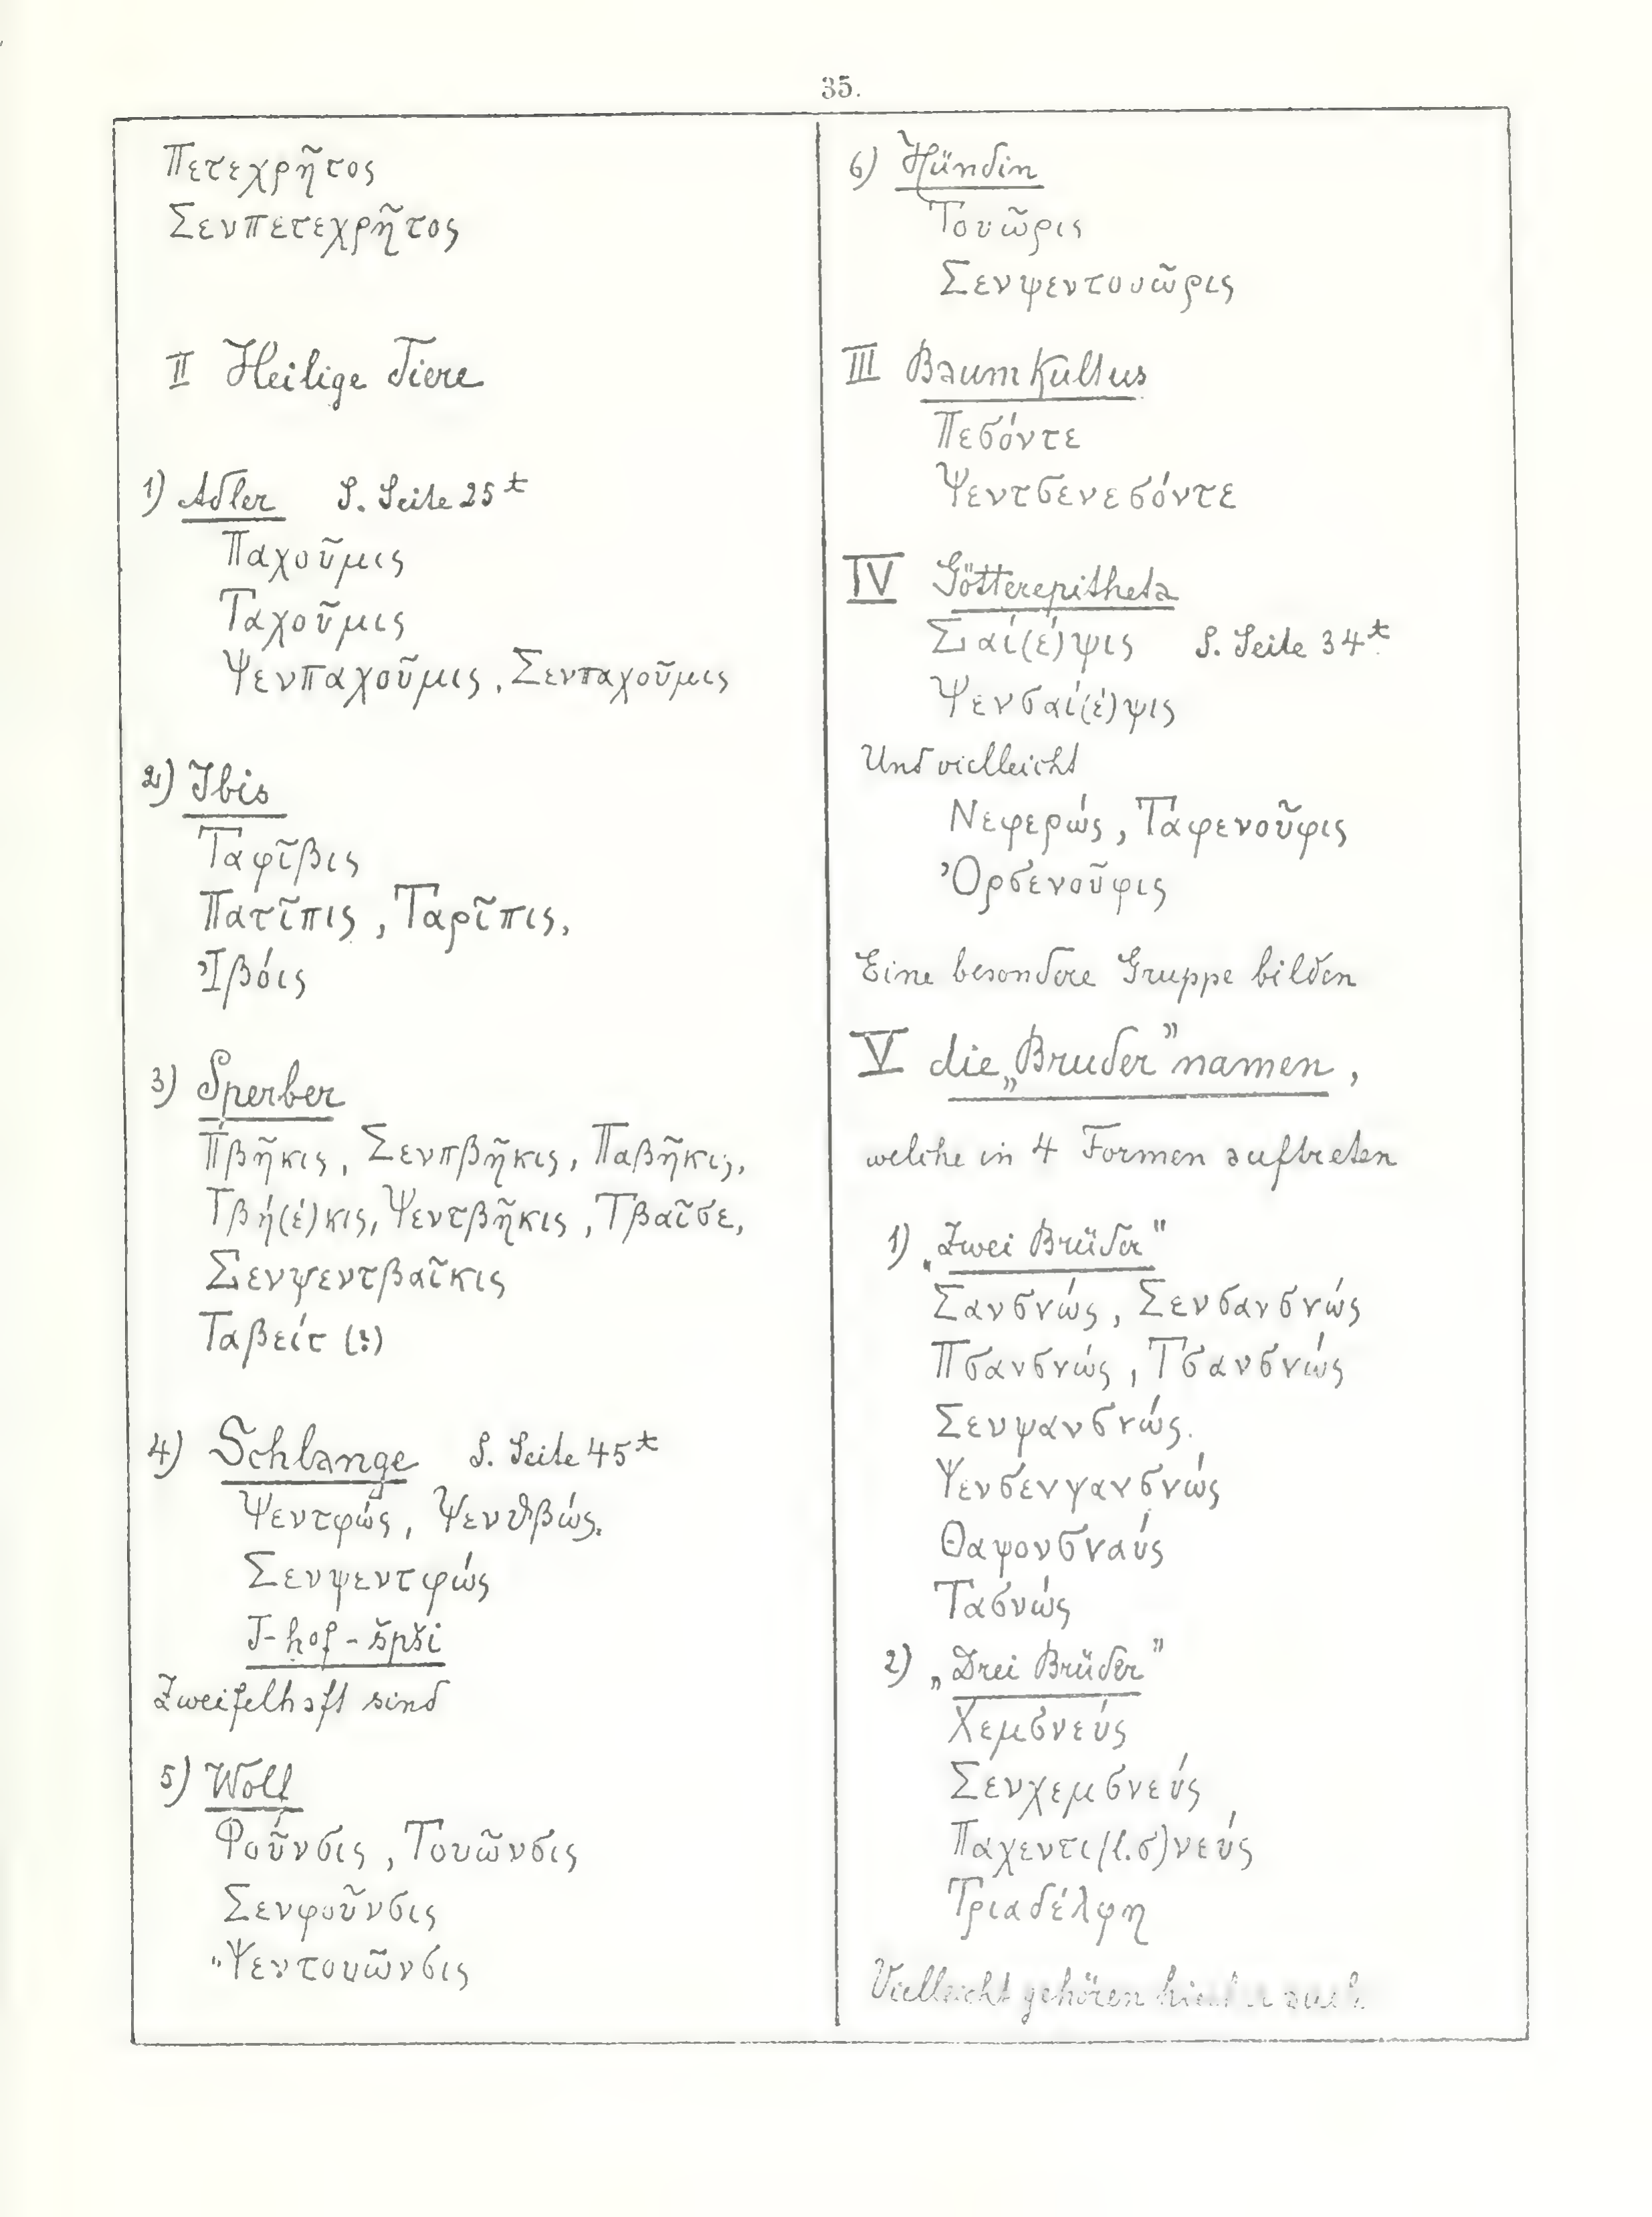 35.
Πετεχρῆτος
Σενπετεχρῆτος
II Heilige Tiere
1) Adler S. Seite 25t
Παχοῦμις
Ταχοῦμις
Ψενπαχοῦμις, Σενπαχοῦμις
2) Ibis
Ταφῖβις
Πατῖπις, Ταρῖπις,
Ἰβόις
3) Sperber
Πβῆκις, Σενπβῆκις, Παβῆκις,
Τβή(έ)κις, Ψεντβῆκις, Τβαῖσε,
Σενψεντβαῖκις
Ταβείτ (?)
4) Schlange S. Seite 45t
Ψεντφώς, Ψενθβώς.
Σενψεντφώς
T-hof-špši
Zweifelhaft sind
5) Wolf
Φοῦνσις, Τουῶνσις
Σενφοῦνσις
Ψεντουῶνσις
6) Hündin
Τουῶρις
Σενψεντουῶρις
III Baumkultus
Πεσόντε
Ψεντσενεσόντε
IV Götterepitheta
Σιαί(έ)ψις S. Seite 34t
Ψενσαί(έ)ψις
Und vielleicht
Νεφερώς, Ταφενοῦφις
Ὀρσενοῦφις
Eine besondere Gruppe bilden
V die „Bruder"namen,
welche in 4 Formen auftreten
1) „Zwei Brüder"
Σανσνώς, Σενσανσνώς
Πσανσνώς, Τσανσνώς
Σενψανσνώς.
Ψενσενγανσνώς
Θαψονσναύς
Τασνώς
2) „Drei Brüder"
Χεμσνεύς
Σενχεμσνεύς
Παχεντι(l.σ)νεύς
Τριαδέλφη
Vielleicht gehören hierher auch